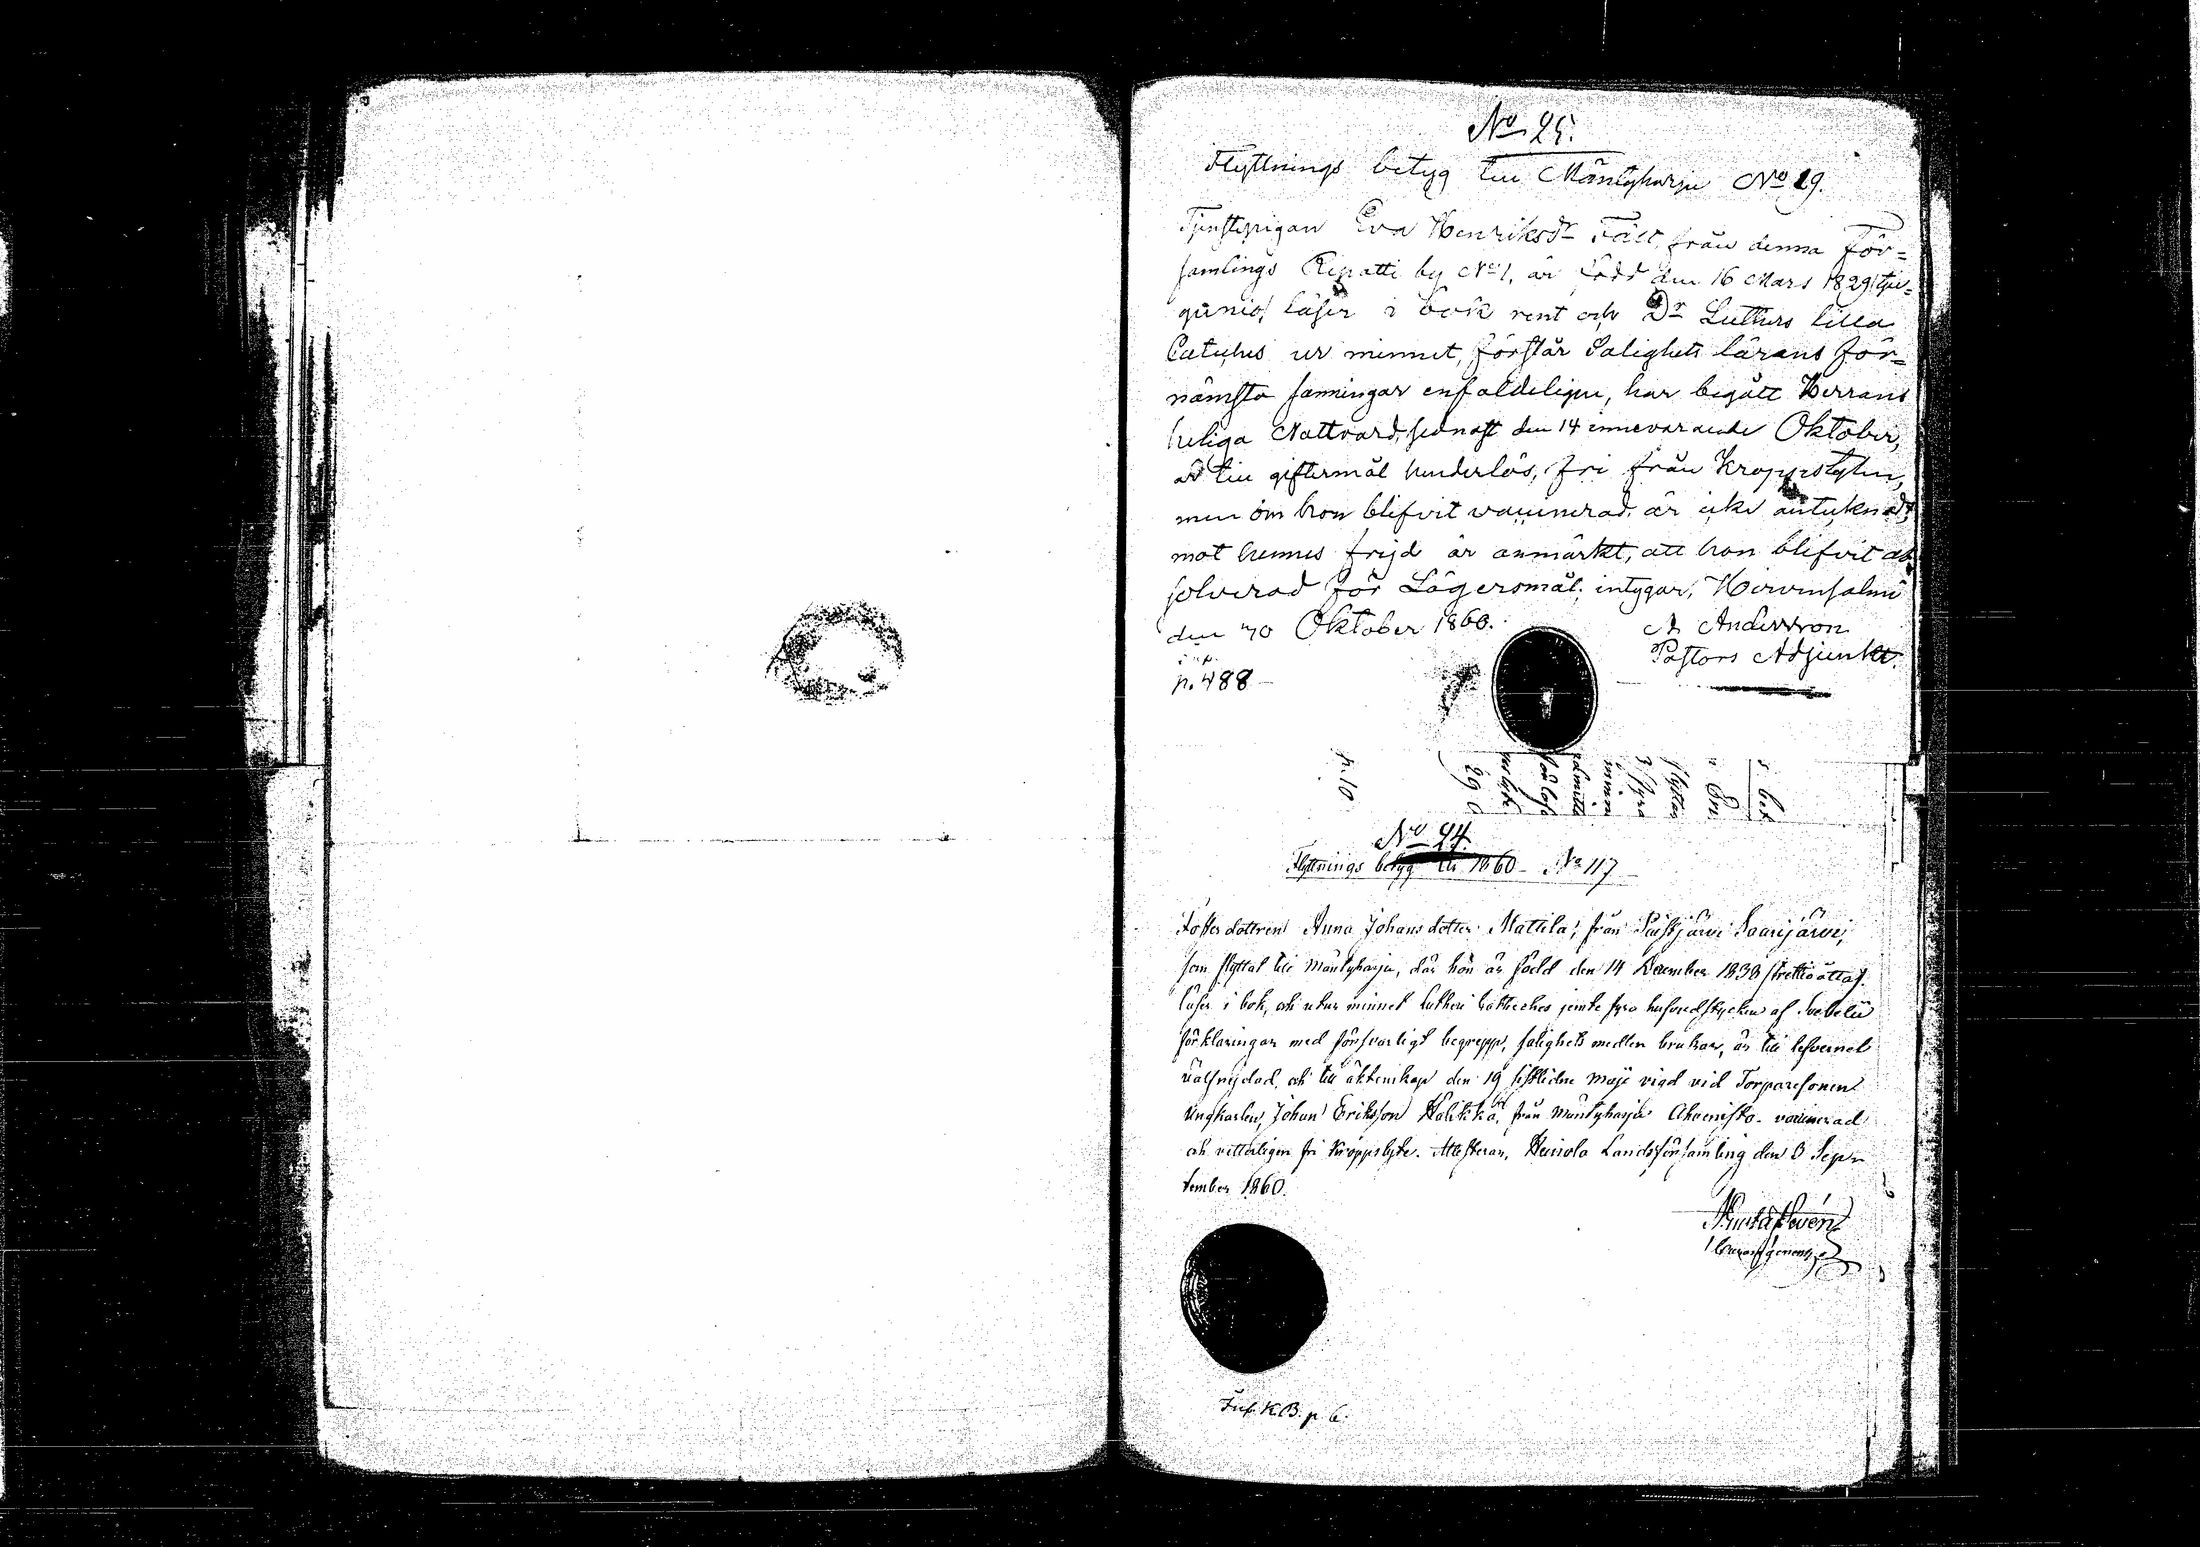 No 25.
Flyttnings betyg till Mäntyharju No 19.
Tjenstepigan Eva Henriksdr Fält, från denna För-
samlings Ripatti by No 1, är född den 16 Mars 1829/tju-
gunio/ läser i bok rent och Dr Luthers lilla
Cateches ur minnet, förstår Salighets lärans för-
nämsta sanningar enfaldeligen, har begått Herrans
heliga Nattvard, sednast den 14 innevarande Oktober,
är till giftermål hinderlös, fri från Kroppslyten,
men om hon blifvit vaccinerad, är icke antecknad;
mot hennes frejd är anmärkt, att hon blifvit ab-
solverad för Lägersmål; intygar, Hirvensalmi
den 30 Oktober 1860.
A Andersson
Pastors Adjunkt.
p. 488
p. 10
No 24.
Flyttnings betyg till 1860 - No 117
Fosterdottren Anna Johansdotter Mattila, från Saarijärvi,
som flyttat till Mäntyharju, där hon är född den 14 December 1838 /trettioåtta/.
läser i bok, och utur minnet Lutheri Catheches jemte fyra hufvudstycken af Svebelii
förklaringar med försvarligt begrepp, salighets medlen brukar, är till lefvernet
välfrejdad, och till äktenskap den 19 sistlidne Maji vigd vid Torparesonen
Ungkarlen, Johan Eriksson Halikka, från Mäntyharju Ahvenisto - vaccinerad
och vetterligen fri Kroppslyte. Attesterar, Heinola Landsförsamling den 8 Sep-
tember 1860.
Inf. K.B. p 6.